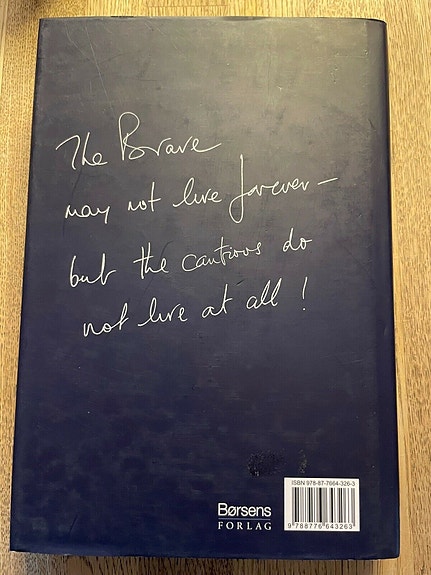 The Brave
may not live forever –
but the cautious do
not live at all !
ISBN 978-87-7664-326-3
Børsens
FORLAG
9 788776 643263